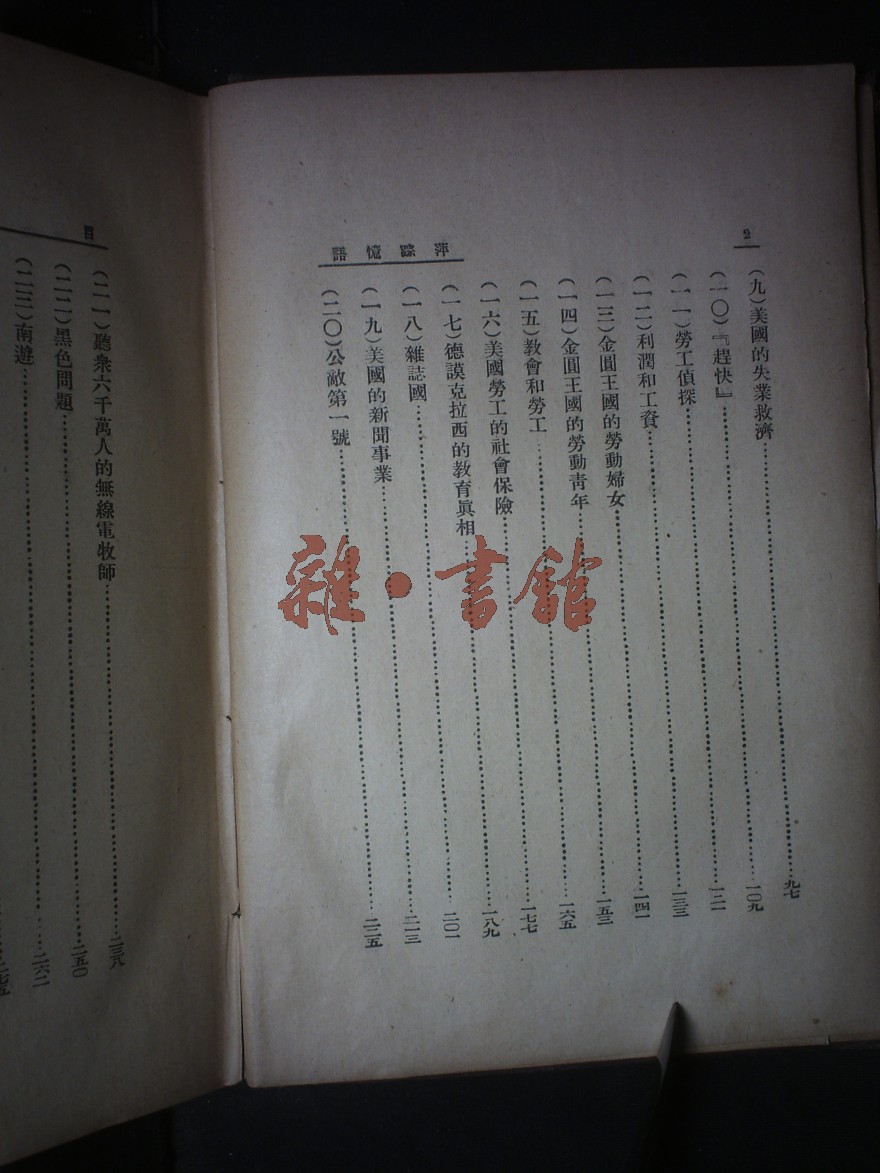 2
萍踪憶語
（九）美國的失業救濟……九七
（一〇）『趕快』……一〇九
（一一）勞工偵探……一二一
（一二）利潤和工資……一三三
（一三）金圓王國的勞動婦女……一四一
（一四）金圓王國的勞動青年……一五三
（一五）教會和勞工……一六五
（一六）美國勞工的社會保險……一七七
（一七）德謨克拉西的教育眞相……一八九
（一八）雜誌國……二〇一
（一九）美國的新聞事業……二一三
（二〇）公敵第一號……二二五
目
（二一）聽衆六千萬人的無線電牧師……二三八
（二二）黑色問題……二五〇
（二三）南遊……二六二
雜·書館